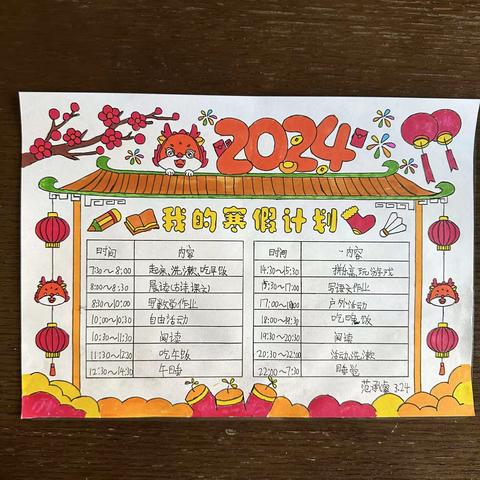 2024
我的寒假计划
时间 内容
7:30~8:00 起床、洗漱、吃早饭
8:00~8:30 晨读(古诗、课文)
8:30~10:00 写数学作业
10:00~10:30 自由活动
10:30~11:30 阅读
11:30~12:30 吃午饭
12:30~14:30 午睡
时间 内容
14:30~15:30 拼乐高,玩游戏
15:30~17:00 写语文作业
17:00~18:00 户外活动
18:00~19:30 吃晚饭
19:30~20:30 阅读
20:30~22:00 活动、洗漱
22:00~7:30 睡觉
范承 3.24